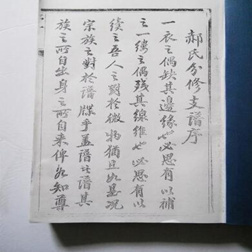 郝氏分修支譜序
一衣之偶缺其邊緣也必思有以補
之一縷之偶殘其線維也必思有以
續之吾人之對於微物猶且如是況
宗族之對於譜牒乎蓋譜也譜其
族之所自出身之所自来俾知尊